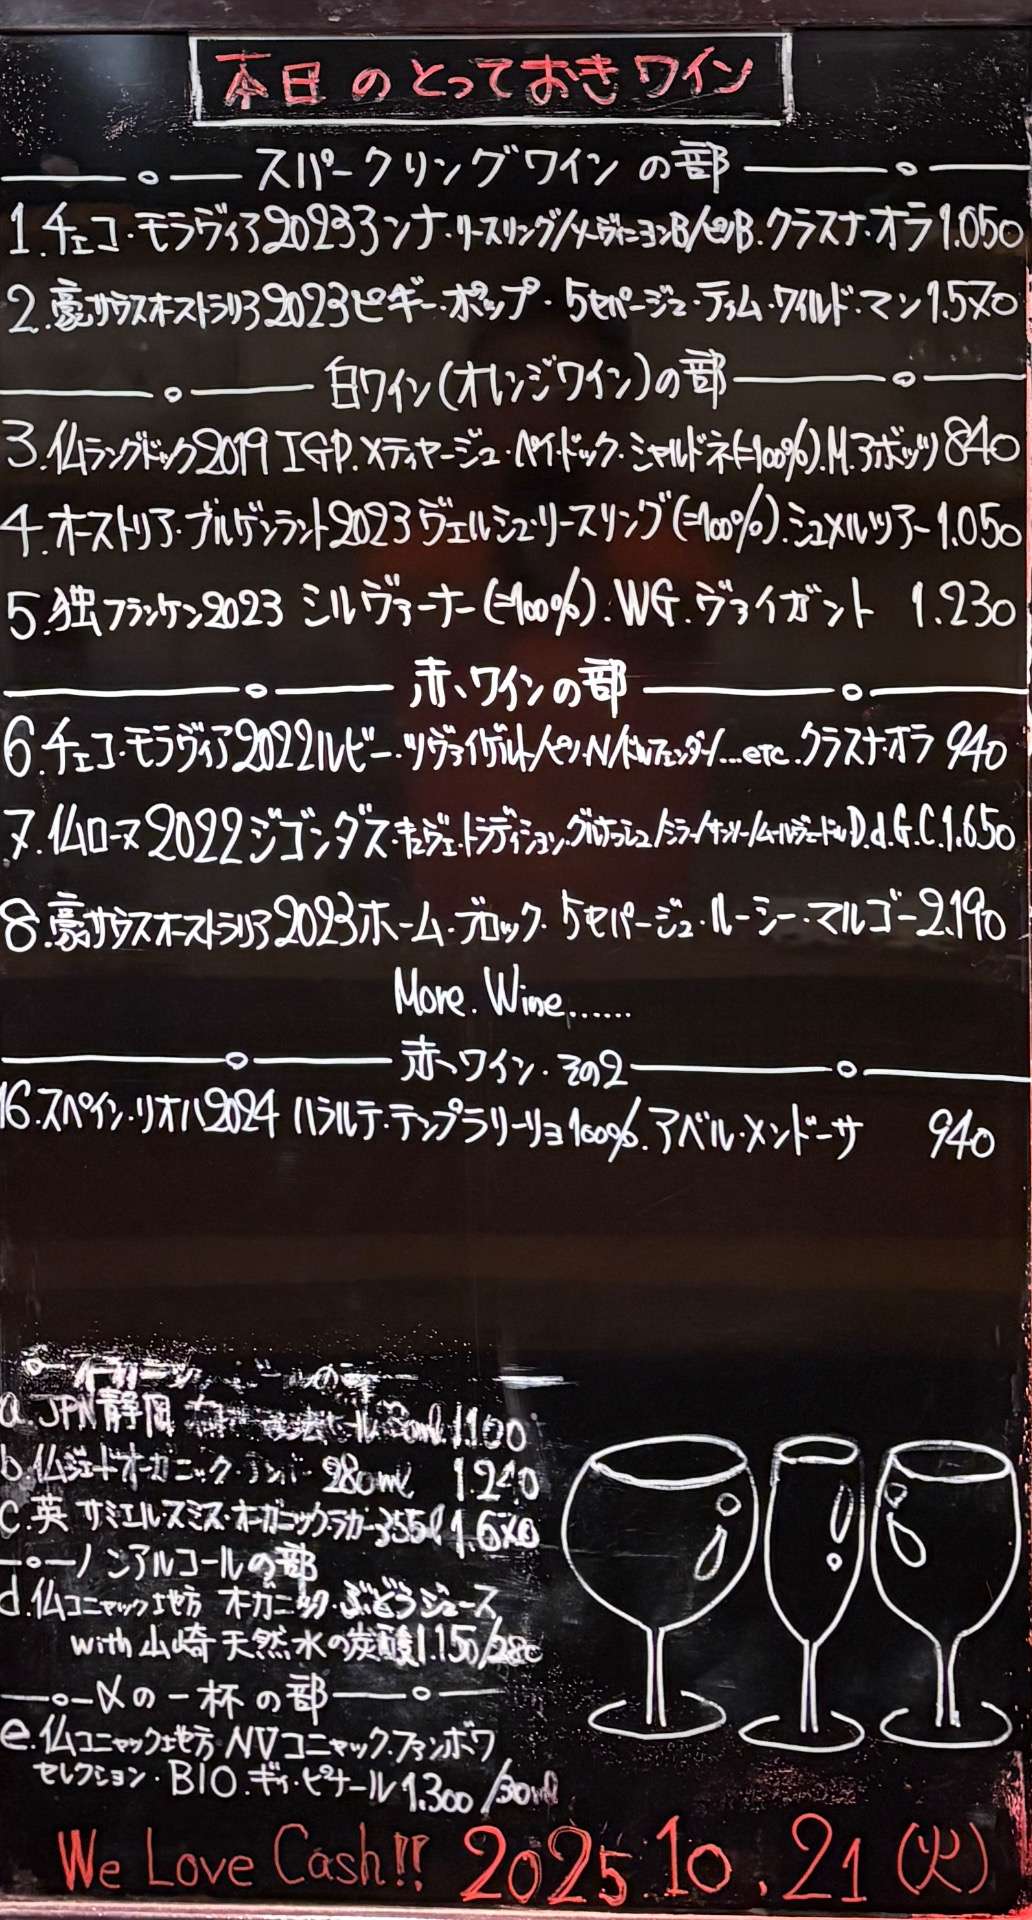 本日のとっておきワイン
スパークリングワインの部
1.チェコ・モラヴィア2023 ンナ・リースリング/ B/ B.クラスナ・オラ 1.050
2.豪サウスオーストラリア2023ピギー・ポップ・5セパージュ・ティム・ワイルド・マン 1.570
白ワイン(オレンジワイン)の部
3.仏ラングドック2019 IGP.メティヤージュ・ペイ・ドック・シャルドネ(=100%).M.アボッツ 840
4.オーストリア・ブルゲンラント2023ヴェルシュ・リースリング(=100%).シュメルツアー 1.050
5.独フランケン2023 ミルヴァーナー(=100%).WG.ヴァイガント 1.230
赤ワインの部
6.チェコ・モラヴィア2022ルビー・ツヴァイゲルト/ピノ・N/ドルンフェンダー/...etc.クラスナ・オラ 940
7.仏ローヌ2022ジゴンダス・キュヴェ・トラディション.グルナッシュ/シラー/サンソー/ムールヴェードル D.d.G.C.1.650
8.豪サウスオーストラリア2023ホーム・ブロック・5セパージュ・ルーシー・マルゴー 2.190
More. Wine......
赤ワイン・その2
16.スペイン・リオハ2024 ハラルテ・テンプラリーリョ100%.アベル・メンドーサ 940
a.JPN静岡 ml.1.100
b.仏ジェードオーガニック・アンバー 280ml 1.240
c.英 サミエル・スミス・オーガニック・ラガー355ml 1.6
ノンアルコールの部
d.仏コニャック地方 オーガニック・ぶどうジュース
with山崎天然水の炭酸1.150/
〆の一杯の部
e.仏コニャック地方 NVコニャック・ファンボワ
セレクション・BIO.ギィ・ピナール 1.300/30ml
We Love Cash!! 2025.10.21(火)